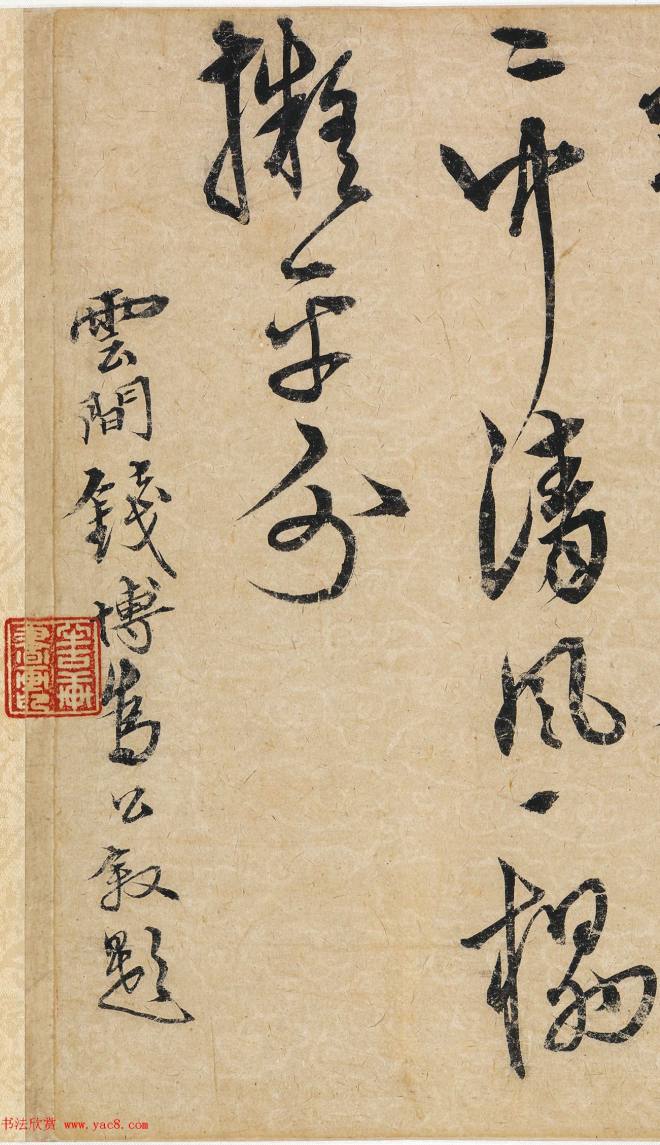 清風一榻
擬平分
雲間錢博為公叙題
书法欣赏 www.yac8.com